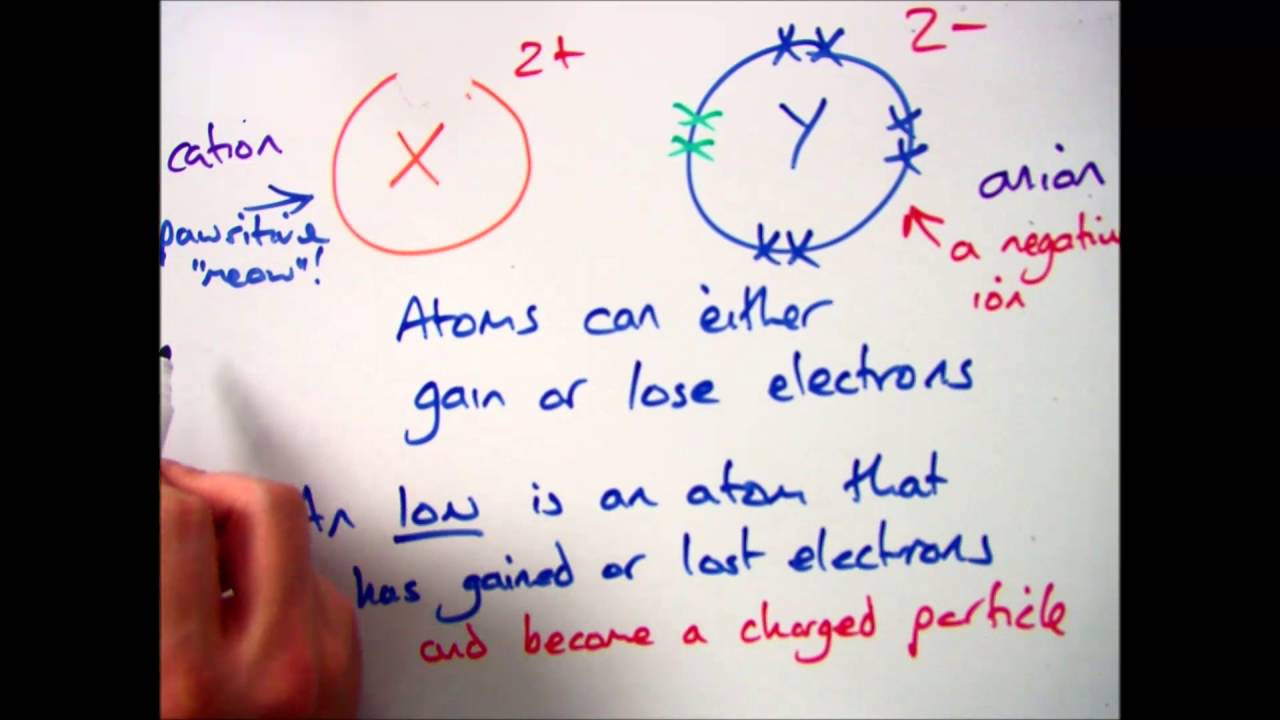 2+
2-
X
Y
cation
pawsitive
"meow"!
anion
a negativ
ion
Atoms can either
gain or lose electrons
An ION is an atom that
has gained or lost electrons
and become a charged particle